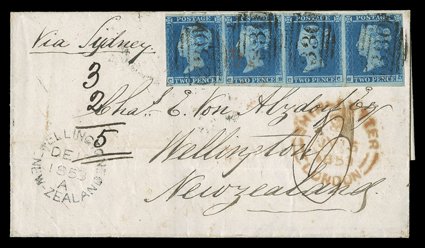 POSTAGE POSTAGE POSTAGE POSTAGE
TWO PENCE TWO PENCE TWO PENCE TWO PENCE
Via Sydney
3
2
5
Chas. E. Von Alzdorf Esq
Wellington
Newzealand
WELLINGTON
DE
1853
A
NEW-ZEALAND
SHIP LETTER
LONDON